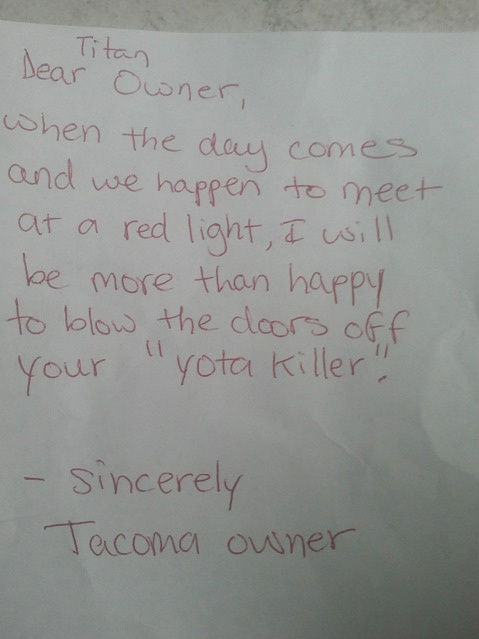 Titan
Dear Owner,
when the day comes
and we happen to meet
at a red light, I will
be more than happy
to blow the doors off
your "yota killer".
- Sincerely
Tacoma owner